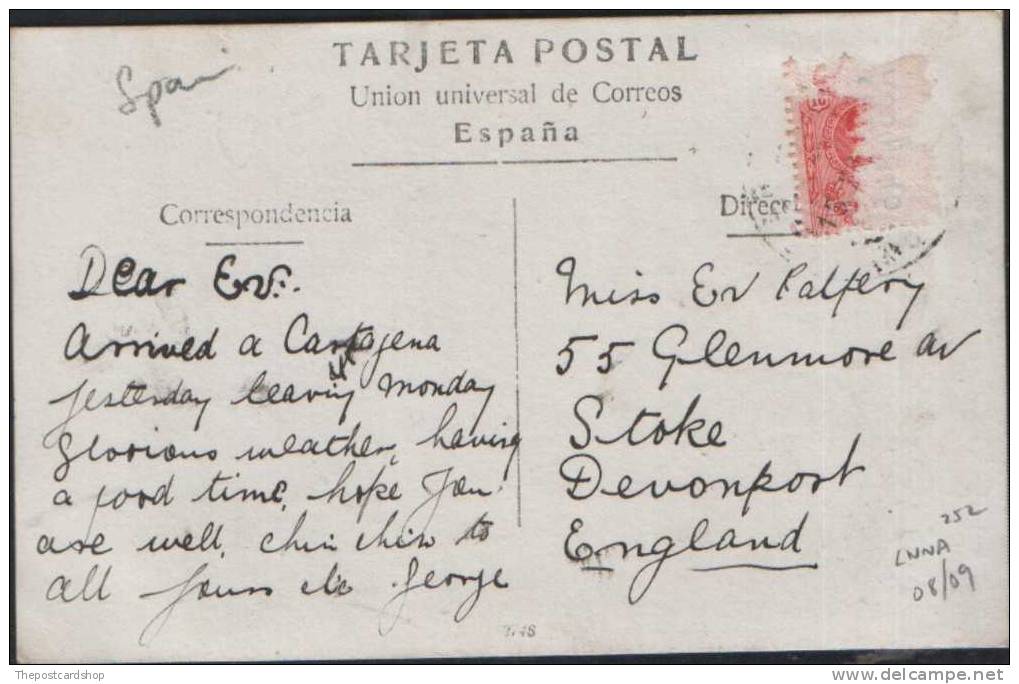 TARJETA POSTAL
Union universal de Correos
España
Spain
Correspondencia
Dear Ev.
Arrived a Cartagena
yesterday leaving Monday
glorious weather, having
a good time, hope you
are well, chin chin to
all yours etc George
Direcci
Miss Ev Palfery
55 Glenmore av
Stoke
Devonport
England
252
LNNA
08/09
Thepostcardshop
delcampe.net